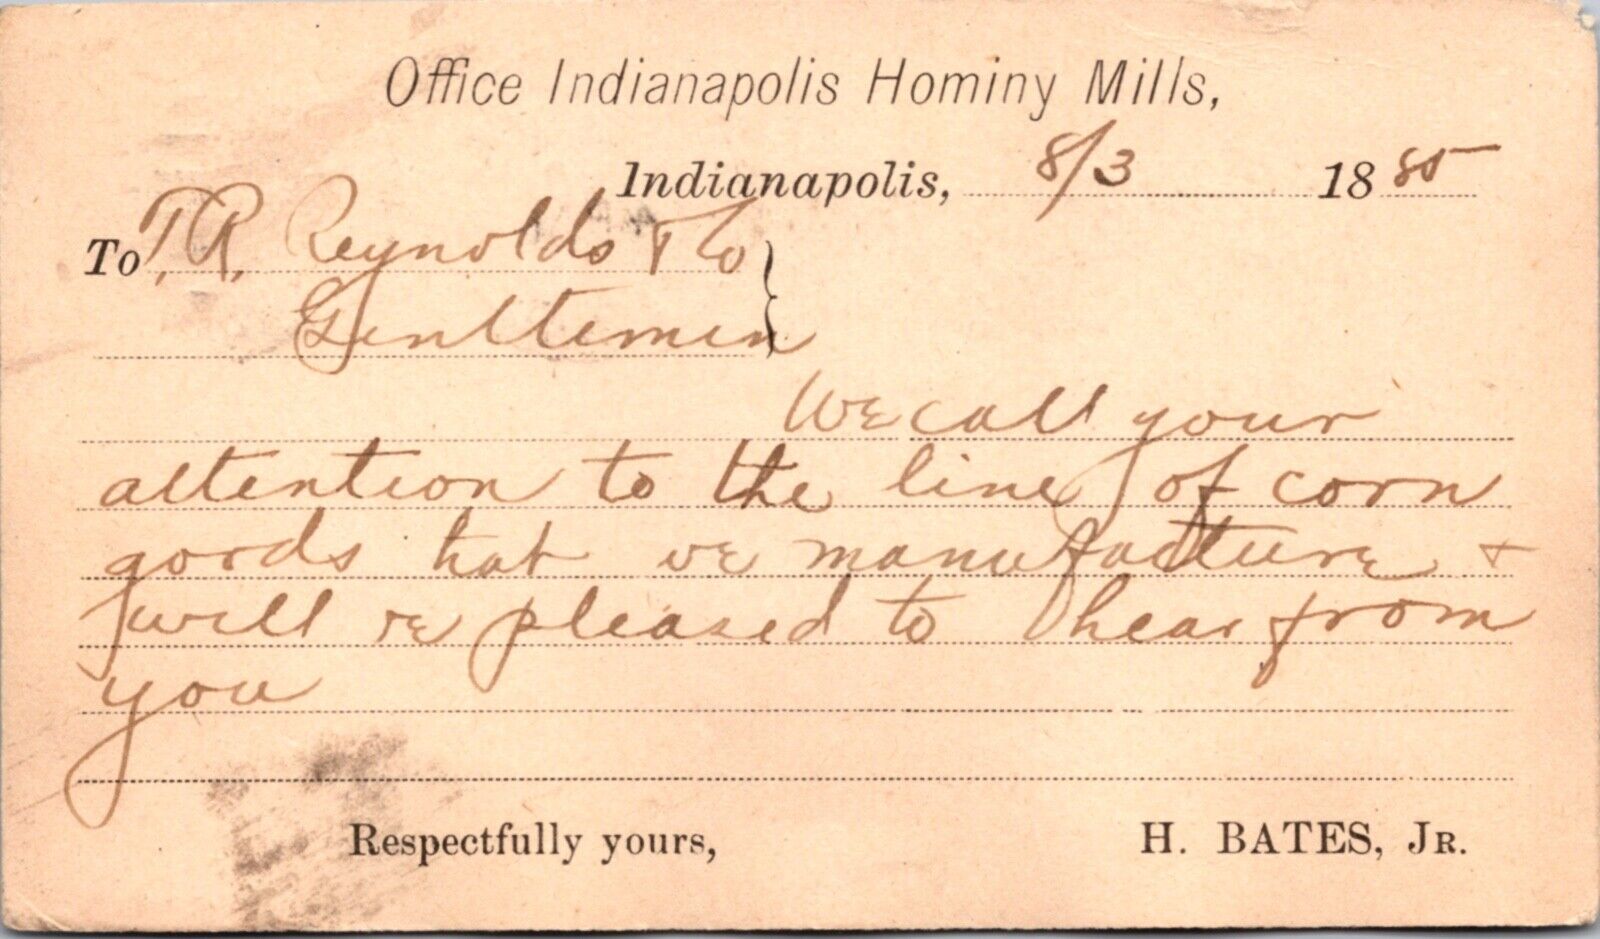 Office Indianapolis Hominy Mills,
Indianapolis, 8/3 1885
To T. R. Reynolds & Co
Gentlemen
We call your
attention to the line of corn
goods that we manufacture +
will be pleased to hear from
you
Respectfully yours, H. BATES, JR.